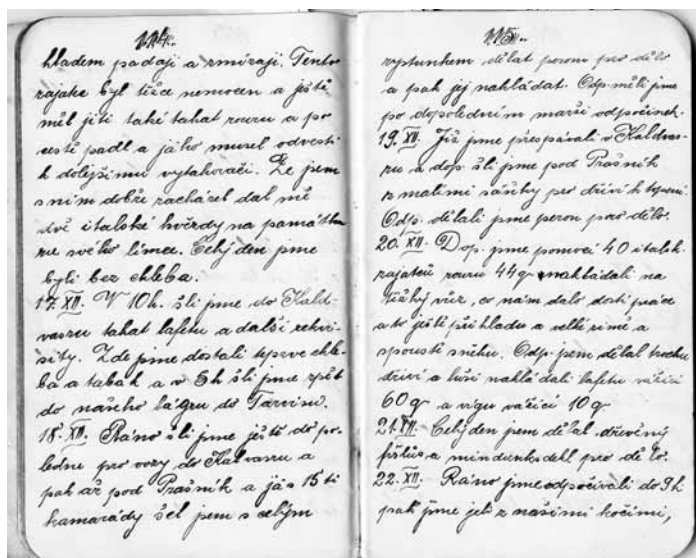 114.
hladem padají a zmírají. Tento
zajatec byl těžce nemocen a ještě
měl jíti také tahat rouru a po
cestě padl a já ho musel odvésti
k dolejšímu vytahovači. Že jsem
s ním dobře zacházel dal mě
dvě italské hvězdy na památku
ze svého límce. Celý den jsme
byli bez chleba.
17. XII. V 10h. šli jsme do Kald-
vassru tahat lafetu a další rekvi-
sity. Zde jsme dostali teprve chle-
ba a tabák a v 5h šli jsme zpět
do našeho lágru do Tarvisu.
18. XII. Ráno šli jsme ještě do po-
ledne pro vozy do Kalvassru a
pak až pod Prašnik a já s 15ti
kamarády šel jsem s celým
115.
rystunkem dělat peron pro dělo
a pak jej nakládat. Odp. měli jsme
po dopoledním marši odpočinek.
19. XII. Již jsme přespávali v Kaldvas-
ru a dop. šli jsme pod Prašnik
s malými sáňky pro dříví k topení.
Odp. dělali jsme peron pro dělo.
20. XII. Dop. jsme pomocí 40 italsk.
zajatců rouru 44q nakládali na
těžký vůz, co nám dalo dosti práce
a to ještě při hladu a velké zimě a
spoustě sněhu. Odp. jsem dělal trochu
dříví a hoši nakládali lafetu vážící
60 q a vigu vážící 10 q.
21. XII. Celý den jsem dělal dřevěný
a pro dělo.
22. XII. Ráno jsme odpočívali do 9h
pak jsme jeli z našimi kočími,